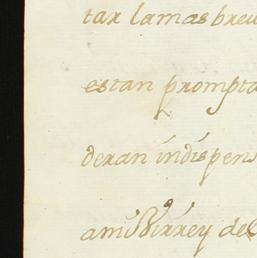 tar lamas brev
estan prompta
deran indispen
a mi Virrey de